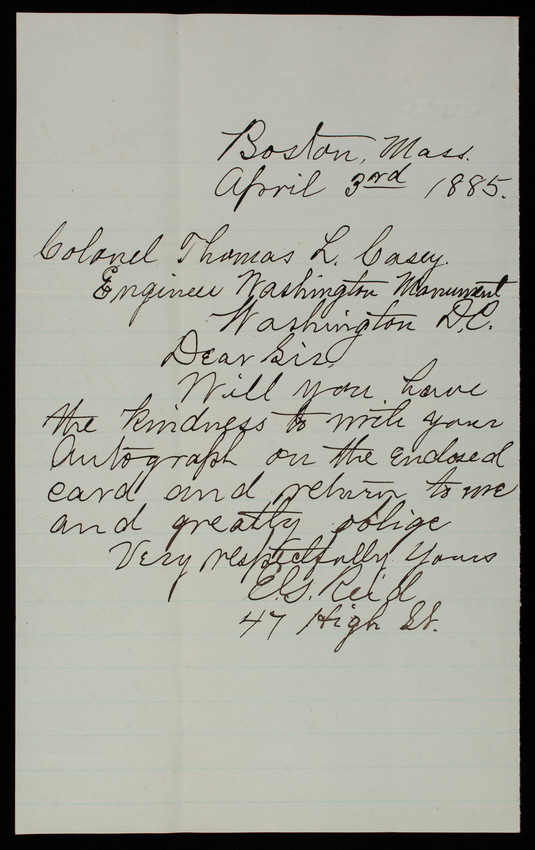 Boston, Mass.
April 3rd 1885.
Colonel Thomas L. Casey.
Engineer Washington Monument
Washington D.C.
Dear Sir,
Will you have
the kindness to write your
Autograph on the enclosed
card and return to me
and greatly oblige
Very respectfully Yours
E.S. Reid
47 High St.